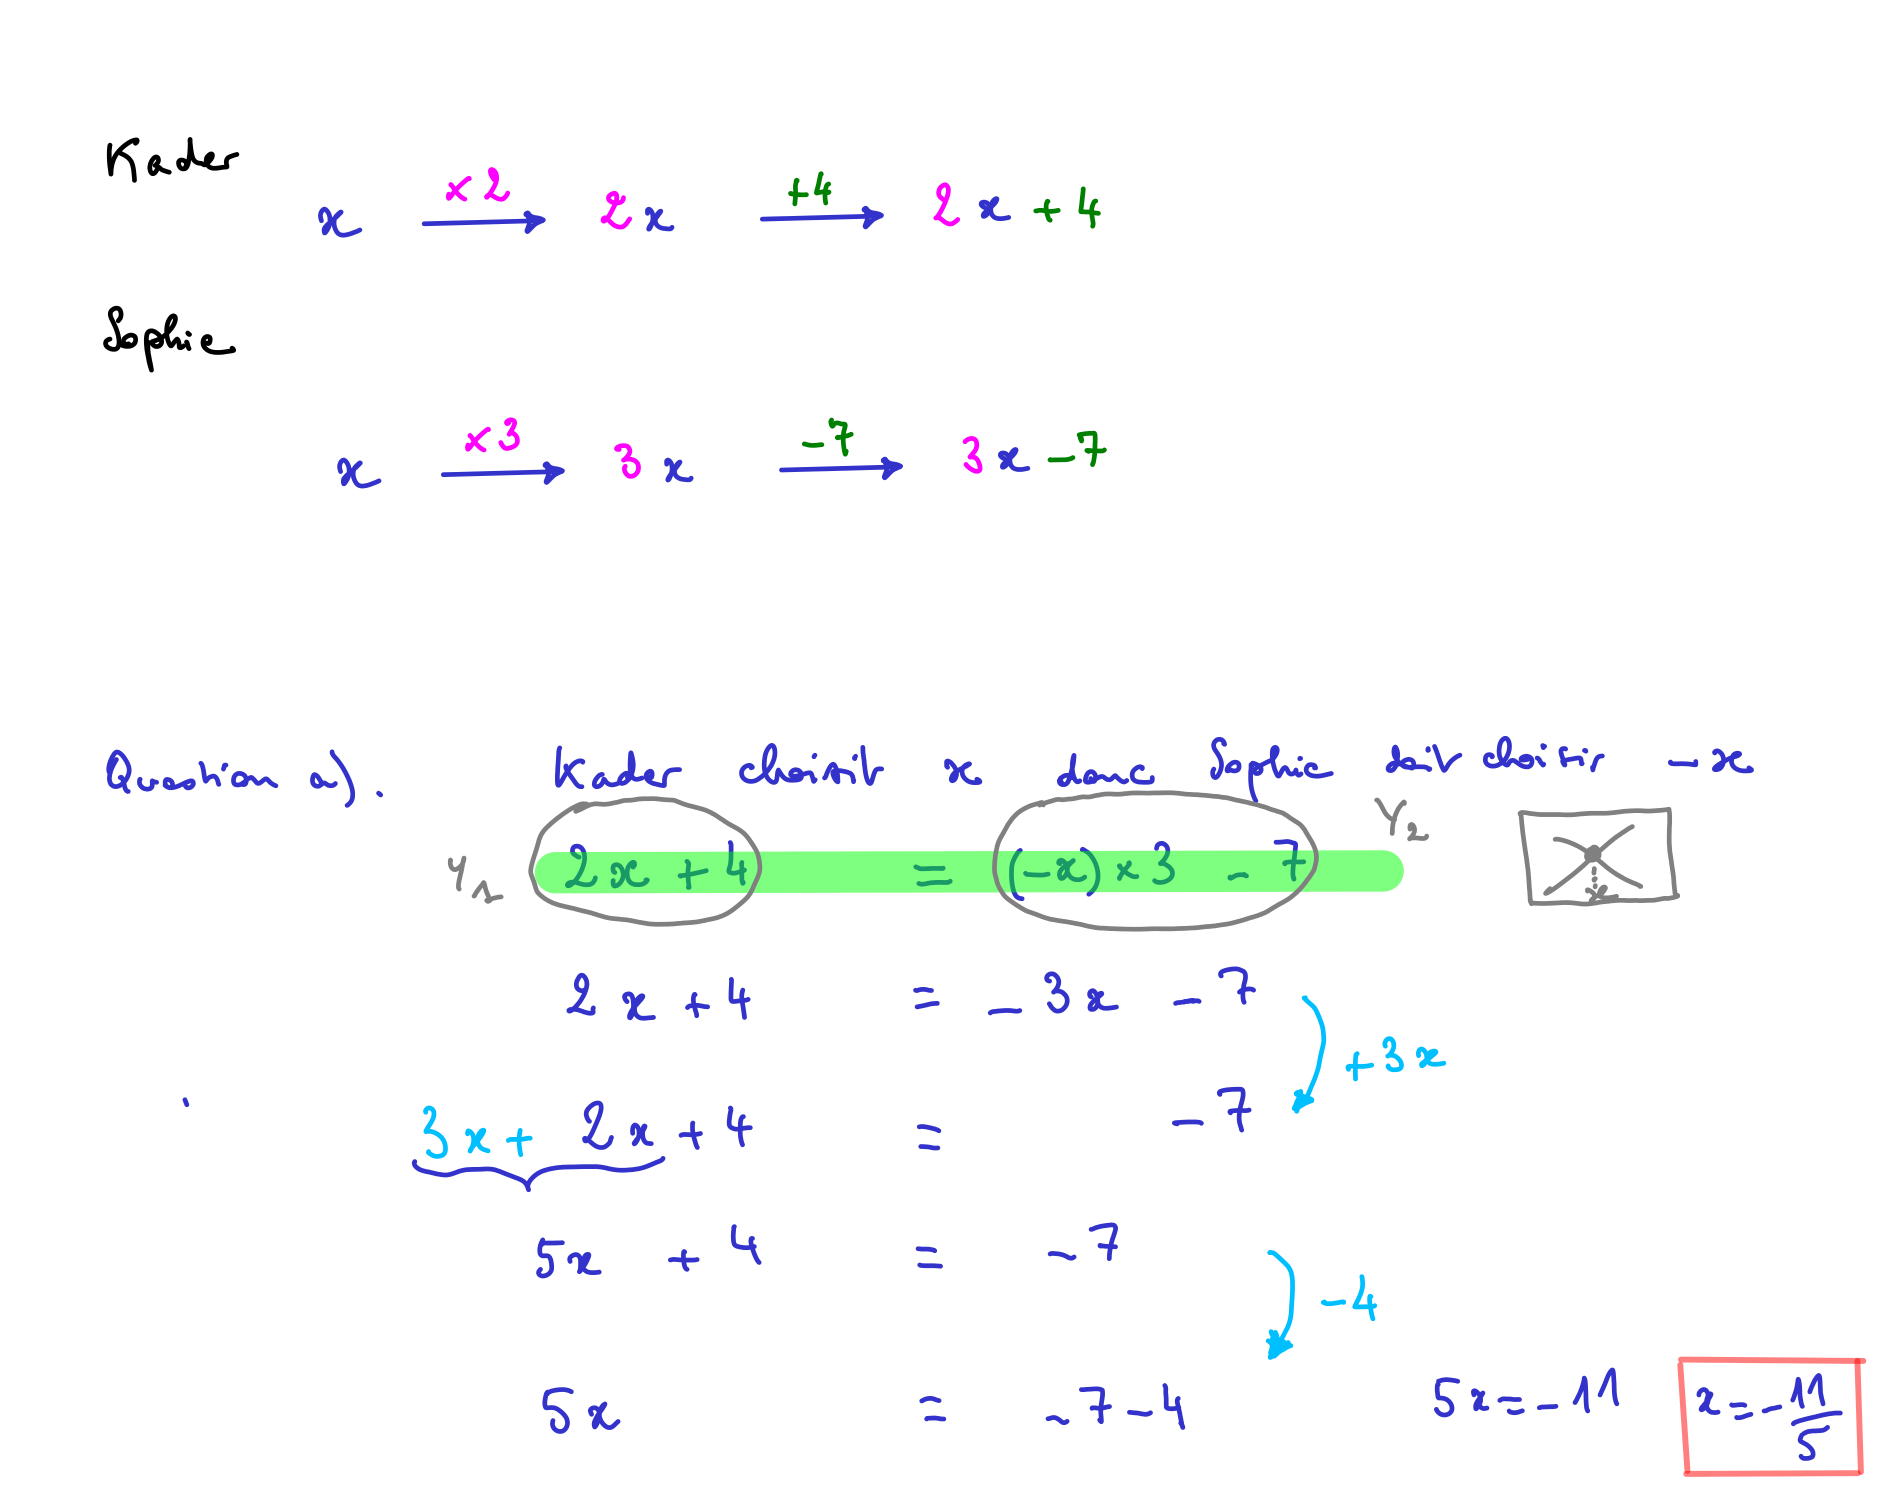 Kader
x ×2 → 2x +4 → 2x + 4
Sophie
x ×3 → 3x -7 → 3x - 7
Question a). Kader choisit x donc Sophie doit choisir - x
Y1 2x + 4 = (-x) × 3 - 7 Y2
x
2x + 4 = - 3x - 7
+3x
3x + 2x + 4 = - 7
5x + 4 = - 7
- 4
5x = - 7 - 4 5x = - 11 x = - 11/5